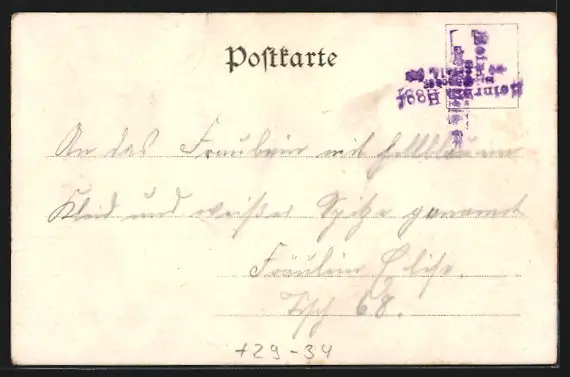 Postkarte
An das Fräulein mit hellblauem
Kleid und weißer Spitze genannt
Fräulein Elise.
68.
+29-34